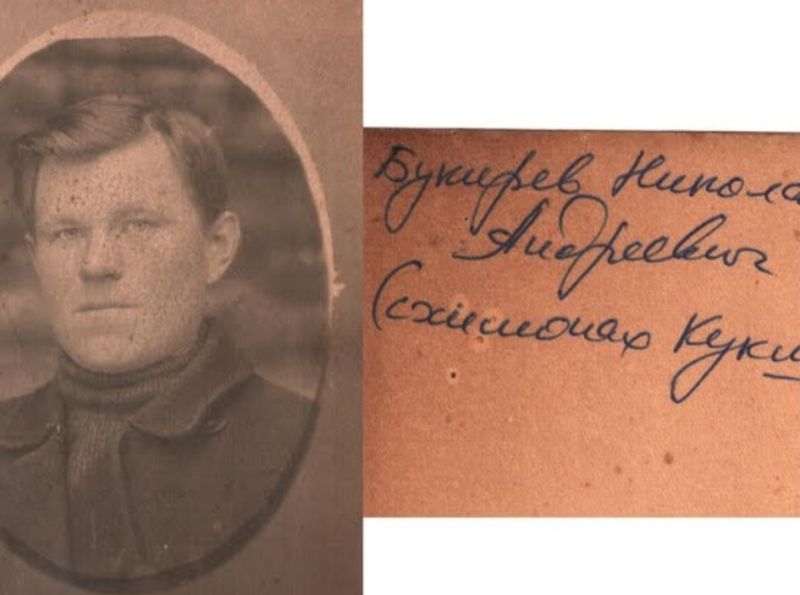 Букирев Никола
Андреевич
(схимонах Кукш